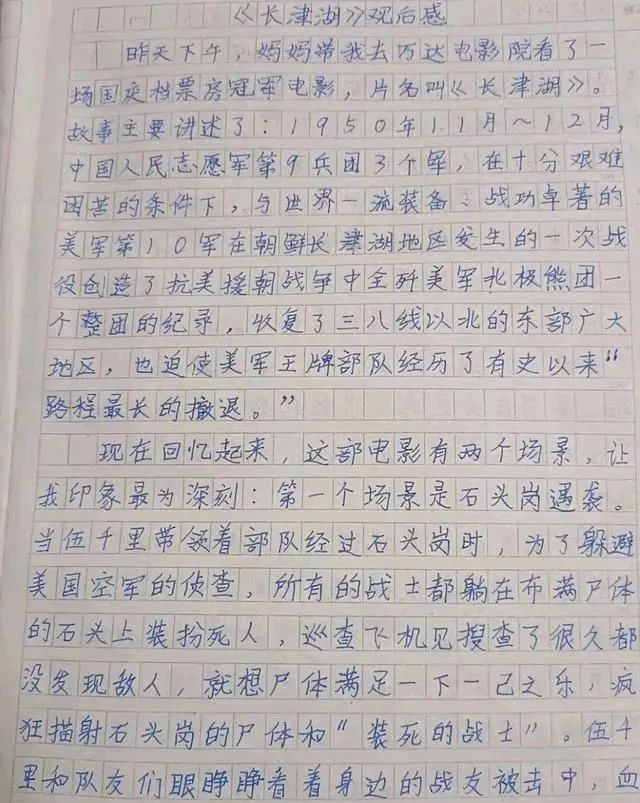 《长津湖》观后感
昨天下午，妈妈带我去万达电影院看了一
场国庆档票房冠军电影，片名叫《长津湖》。
故事主要讲述了：1950年11月～12月，
中国人民志愿军第9兵团3个军，在十分艰难
困苦的条件下，与世界一流装备、战功卓著的
美军第10军在朝鲜长津湖地区发生的一次战
役创造了抗美援朝战争中全歼美军北极熊团一
个整团的纪录，收复了三八线以北的东部广大
地区，也迫使美军王牌部队经历了有史以来“
路程最长的撤退。”
现在回忆起来，这部电影有两个场景，让
我印象最为深刻：第一个场景是石头岗遇袭。
当伍千里带领着部队经过石头岗时，为了躲避
美国空军的侦查，所有的战士都躺在布满尸体
的石头上装扮死人，巡查飞机见搜查了很久都
没发现敌人，就想尸体满足一下一己之乐，疯
狂描射石头岗的尸体和“装死的战士”。伍千
里和队友们眼睁睁看着身边的战友被击中，血